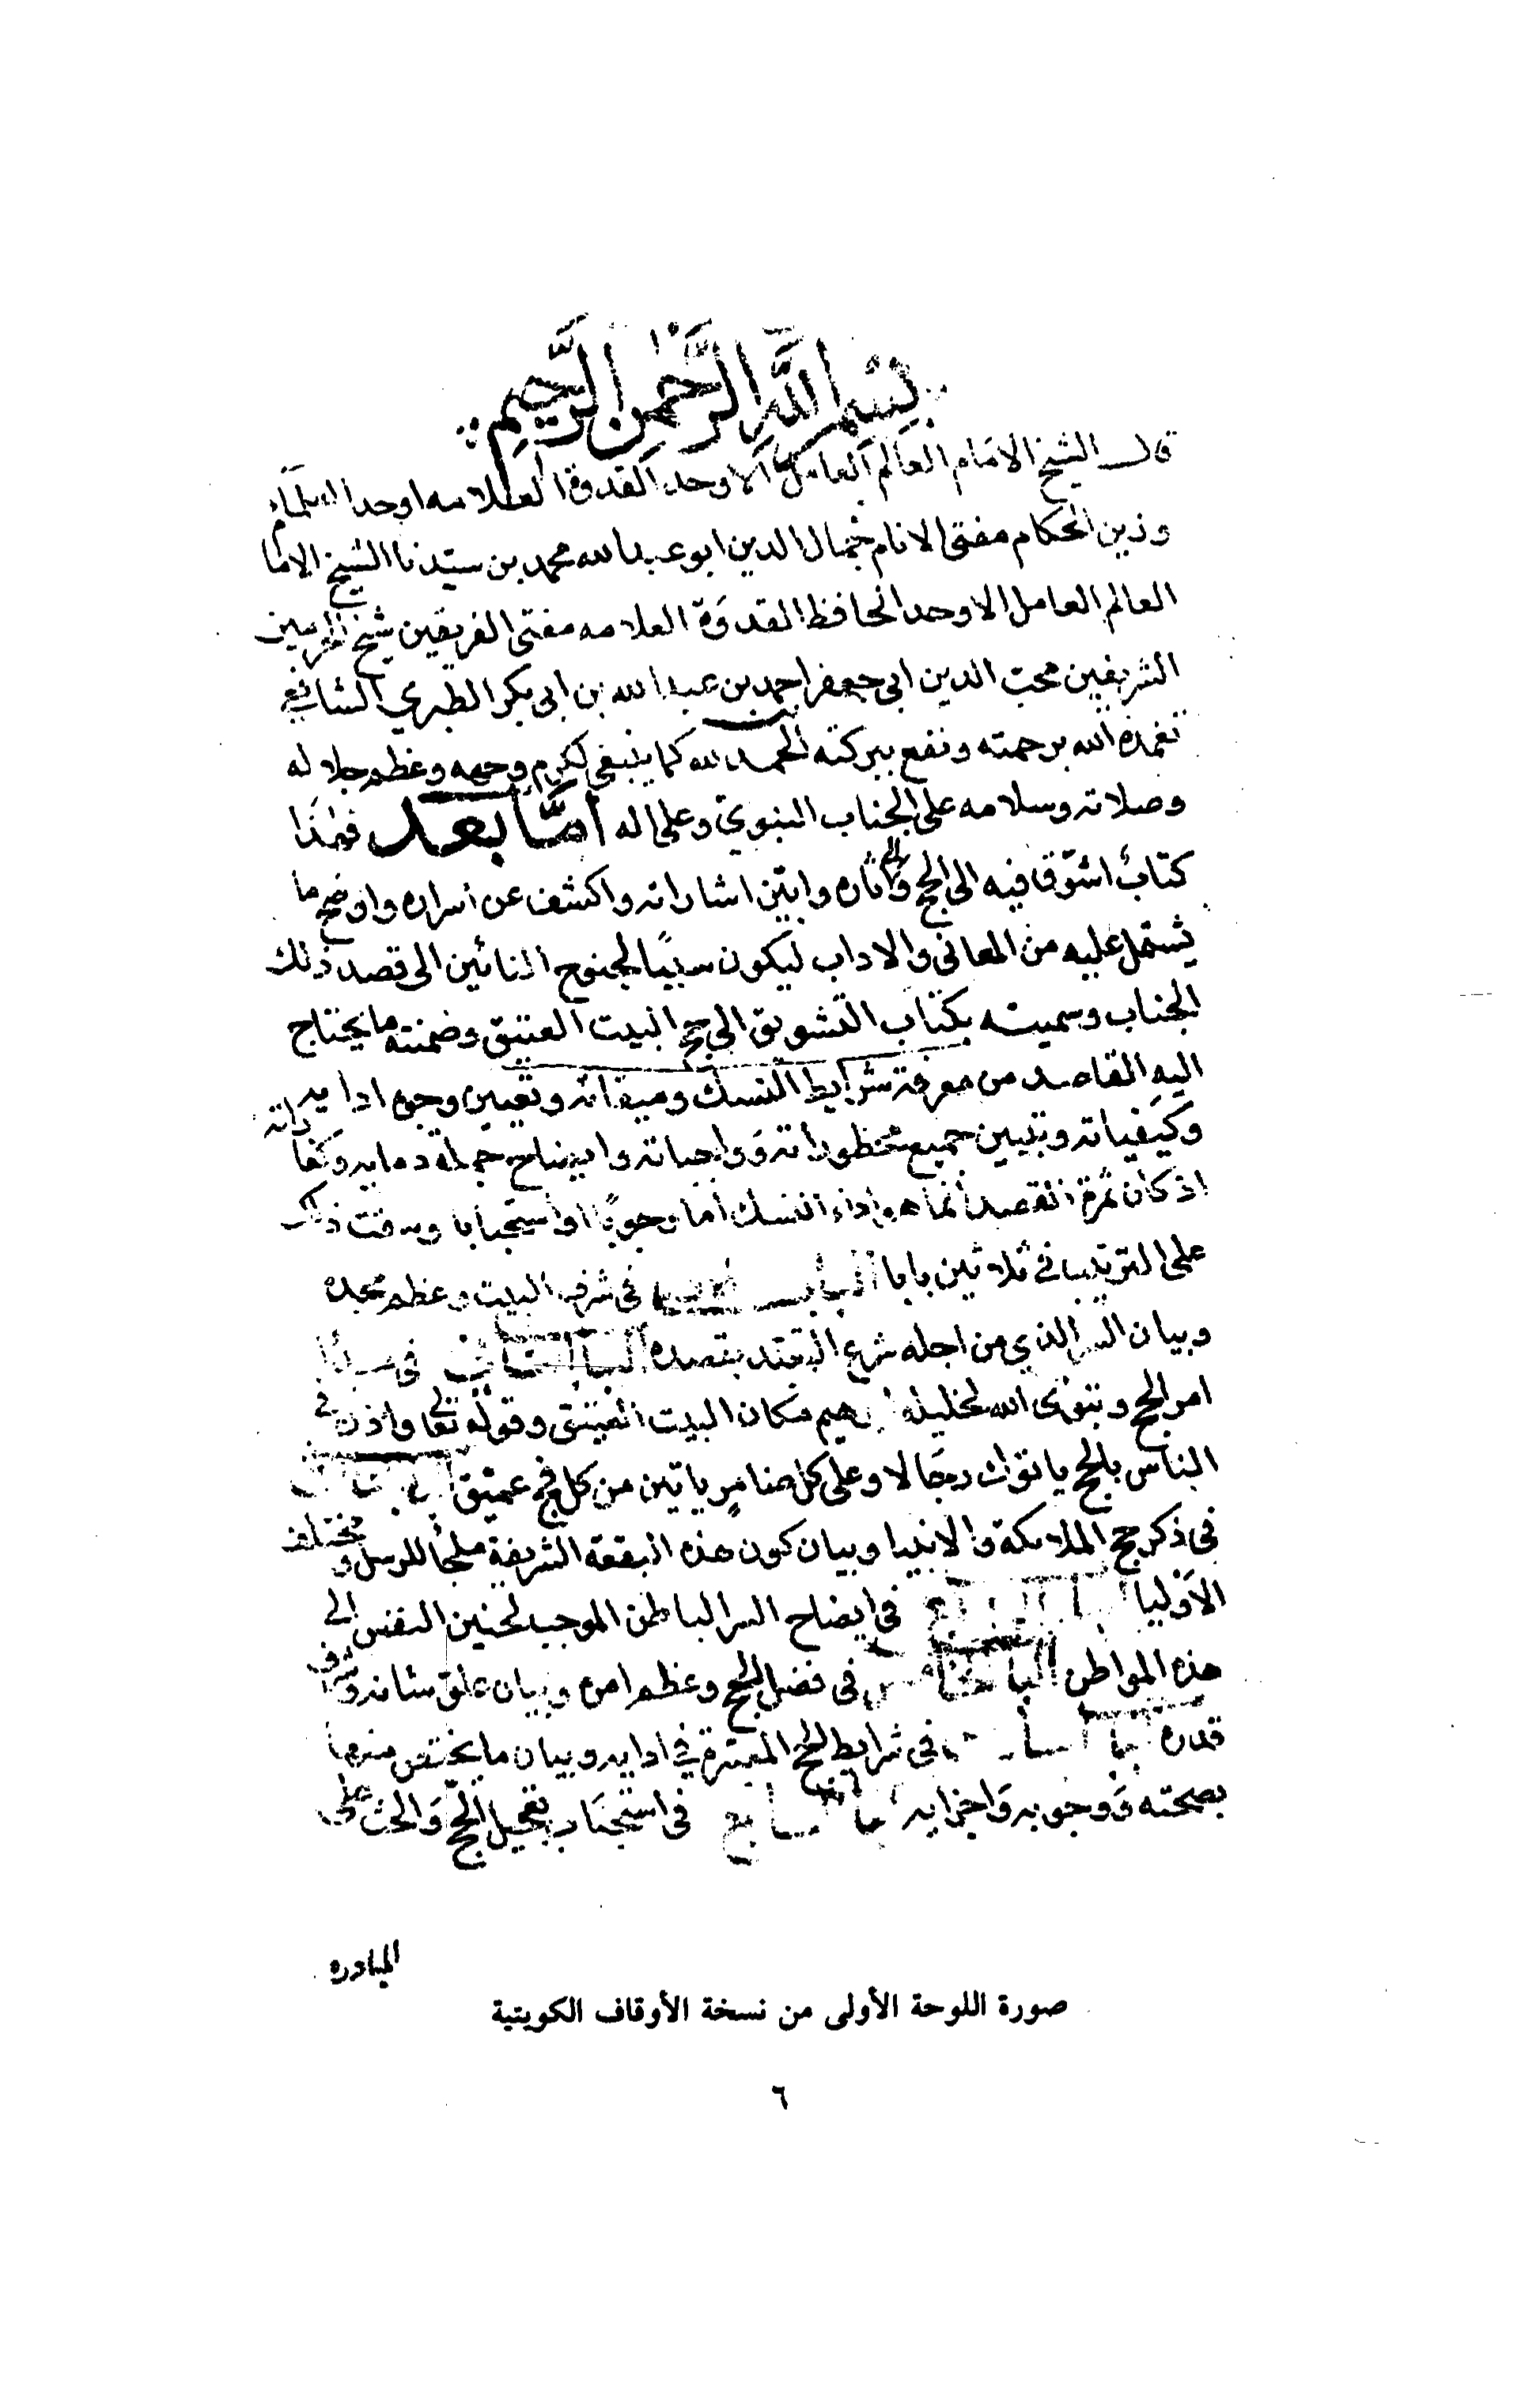 بِسْمِ اللَّهِ الرَّحْمٰنِ الرَّحِيمِ
قال الشيخ الامام العالم العامل الاوحد القدوة العلامه اوحد العلماء
وزين الحكام مفتى الانام جمال الدين ابو عبد الله محمد بن سيدنا الشيخ الاما
العالم العامل الاوحد الحافظ القدوة العلامه مفتى الفريقين شيخ الحرمين
الشريفين محب الدين ابى جعفر احمد بن عبد الله بن ابى بكر الطبري الشافعي
تغمده الله برحمته ونفع ببركته الحمد لله كما ينبغى لكرم وجهه وعظم جلاله
وصلاته وسلامه على الجناب النبوي وعلى اله أمّا بعد فهذا
كتاب اشوّق فيه الى الحج والى آثاره وابيّن اشاراته واكشف عن اسراره واوضح ما
يشتمل عليه من المعانى والاداب ليكون سببًا لجنوح النائين الى قصد ذلك
الجناب وسميته بكتاب التشويق الى حج البيت العتيق وضمنته ما يحتاج
اليه القاصد من معرفة شرايط النسك وميقاته وتعيين وجوه ادايه
وكيفياته وتبيين جميع محظوراته وواجباته وايضاح جملة دمايه وكفاراته
اذ كان ثمرة القصد انما هو اداء النسك اما وجوبًا او استحبابا وسقت ذلك
على الترتيب في ثلاثين بابا الباب في شرف البيت وعظم مجده
وبيان السر الذي من اجله شرع التعبد بقصده الباب الثاني فى
امر الحج وتبوى الله لخليله مكان البيت العتيق وقوله تعا واذن فى
الناس بالحج ياتوك رجالا وعلى كل ضامر ياتين من كل فج عميق
فى ذكر حج الملايكة والانبيا وبيان كون هذه البقعة الشريفة ملجأ للرسل ومختلف
الاوليا في ايضاح السر الباطن الموجب لحنين النفس الى
هذه المواطن الباب الخامس فى فضل الحج وعظم امره وبيان علو شانه وشرف
قدره فى شرايط الحج المعتبرة في ادايه وبيان ما يختص منها
بصحته ووجوبه واجزايه السابع فى استحباب تعجيل الحج والحث على
المبادره
صورة اللوحة الأولى من نسخة الأوقاف الكويتية
٦